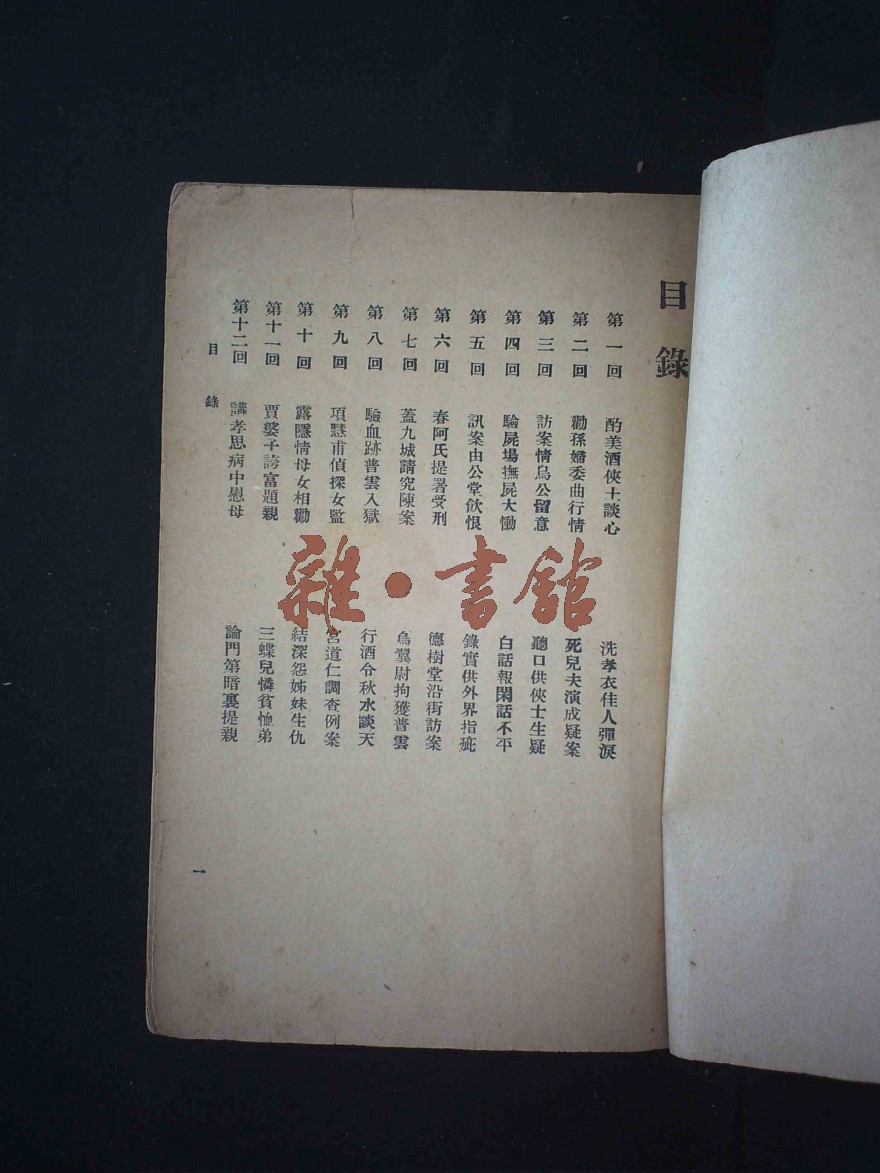 目錄
第一回 酌美酒俠士談心 洗孝衣佳人彈淚
第二回 勸孫婦委曲行情 死兒夫演成疑案
第三回 訪案情烏公留意 聽口供俠士生疑
第四回 驗屍場撫屍大慟 白話報閑話不平
第五回 訊案由公堂飲恨 錄實供外界指疵
第六回 春阿氏提署受刑 德樹堂沿街訪案
第七回 蓋九城請究陳案 烏翼尉拘獲普雲
第八回 驗血跡普雲入獄 行酒令秋水談天
第九回 項慧甫偵探女監 宮道仁調查例案
第十回 露隱情母女相勸 結深怨姊妹生仇
第十一回 賈婆子誇富題親 三蝶兒憐貧恤弟
第十二回 講孝思病中慰母 論門第暗裏提親
目錄
一
雜·書館